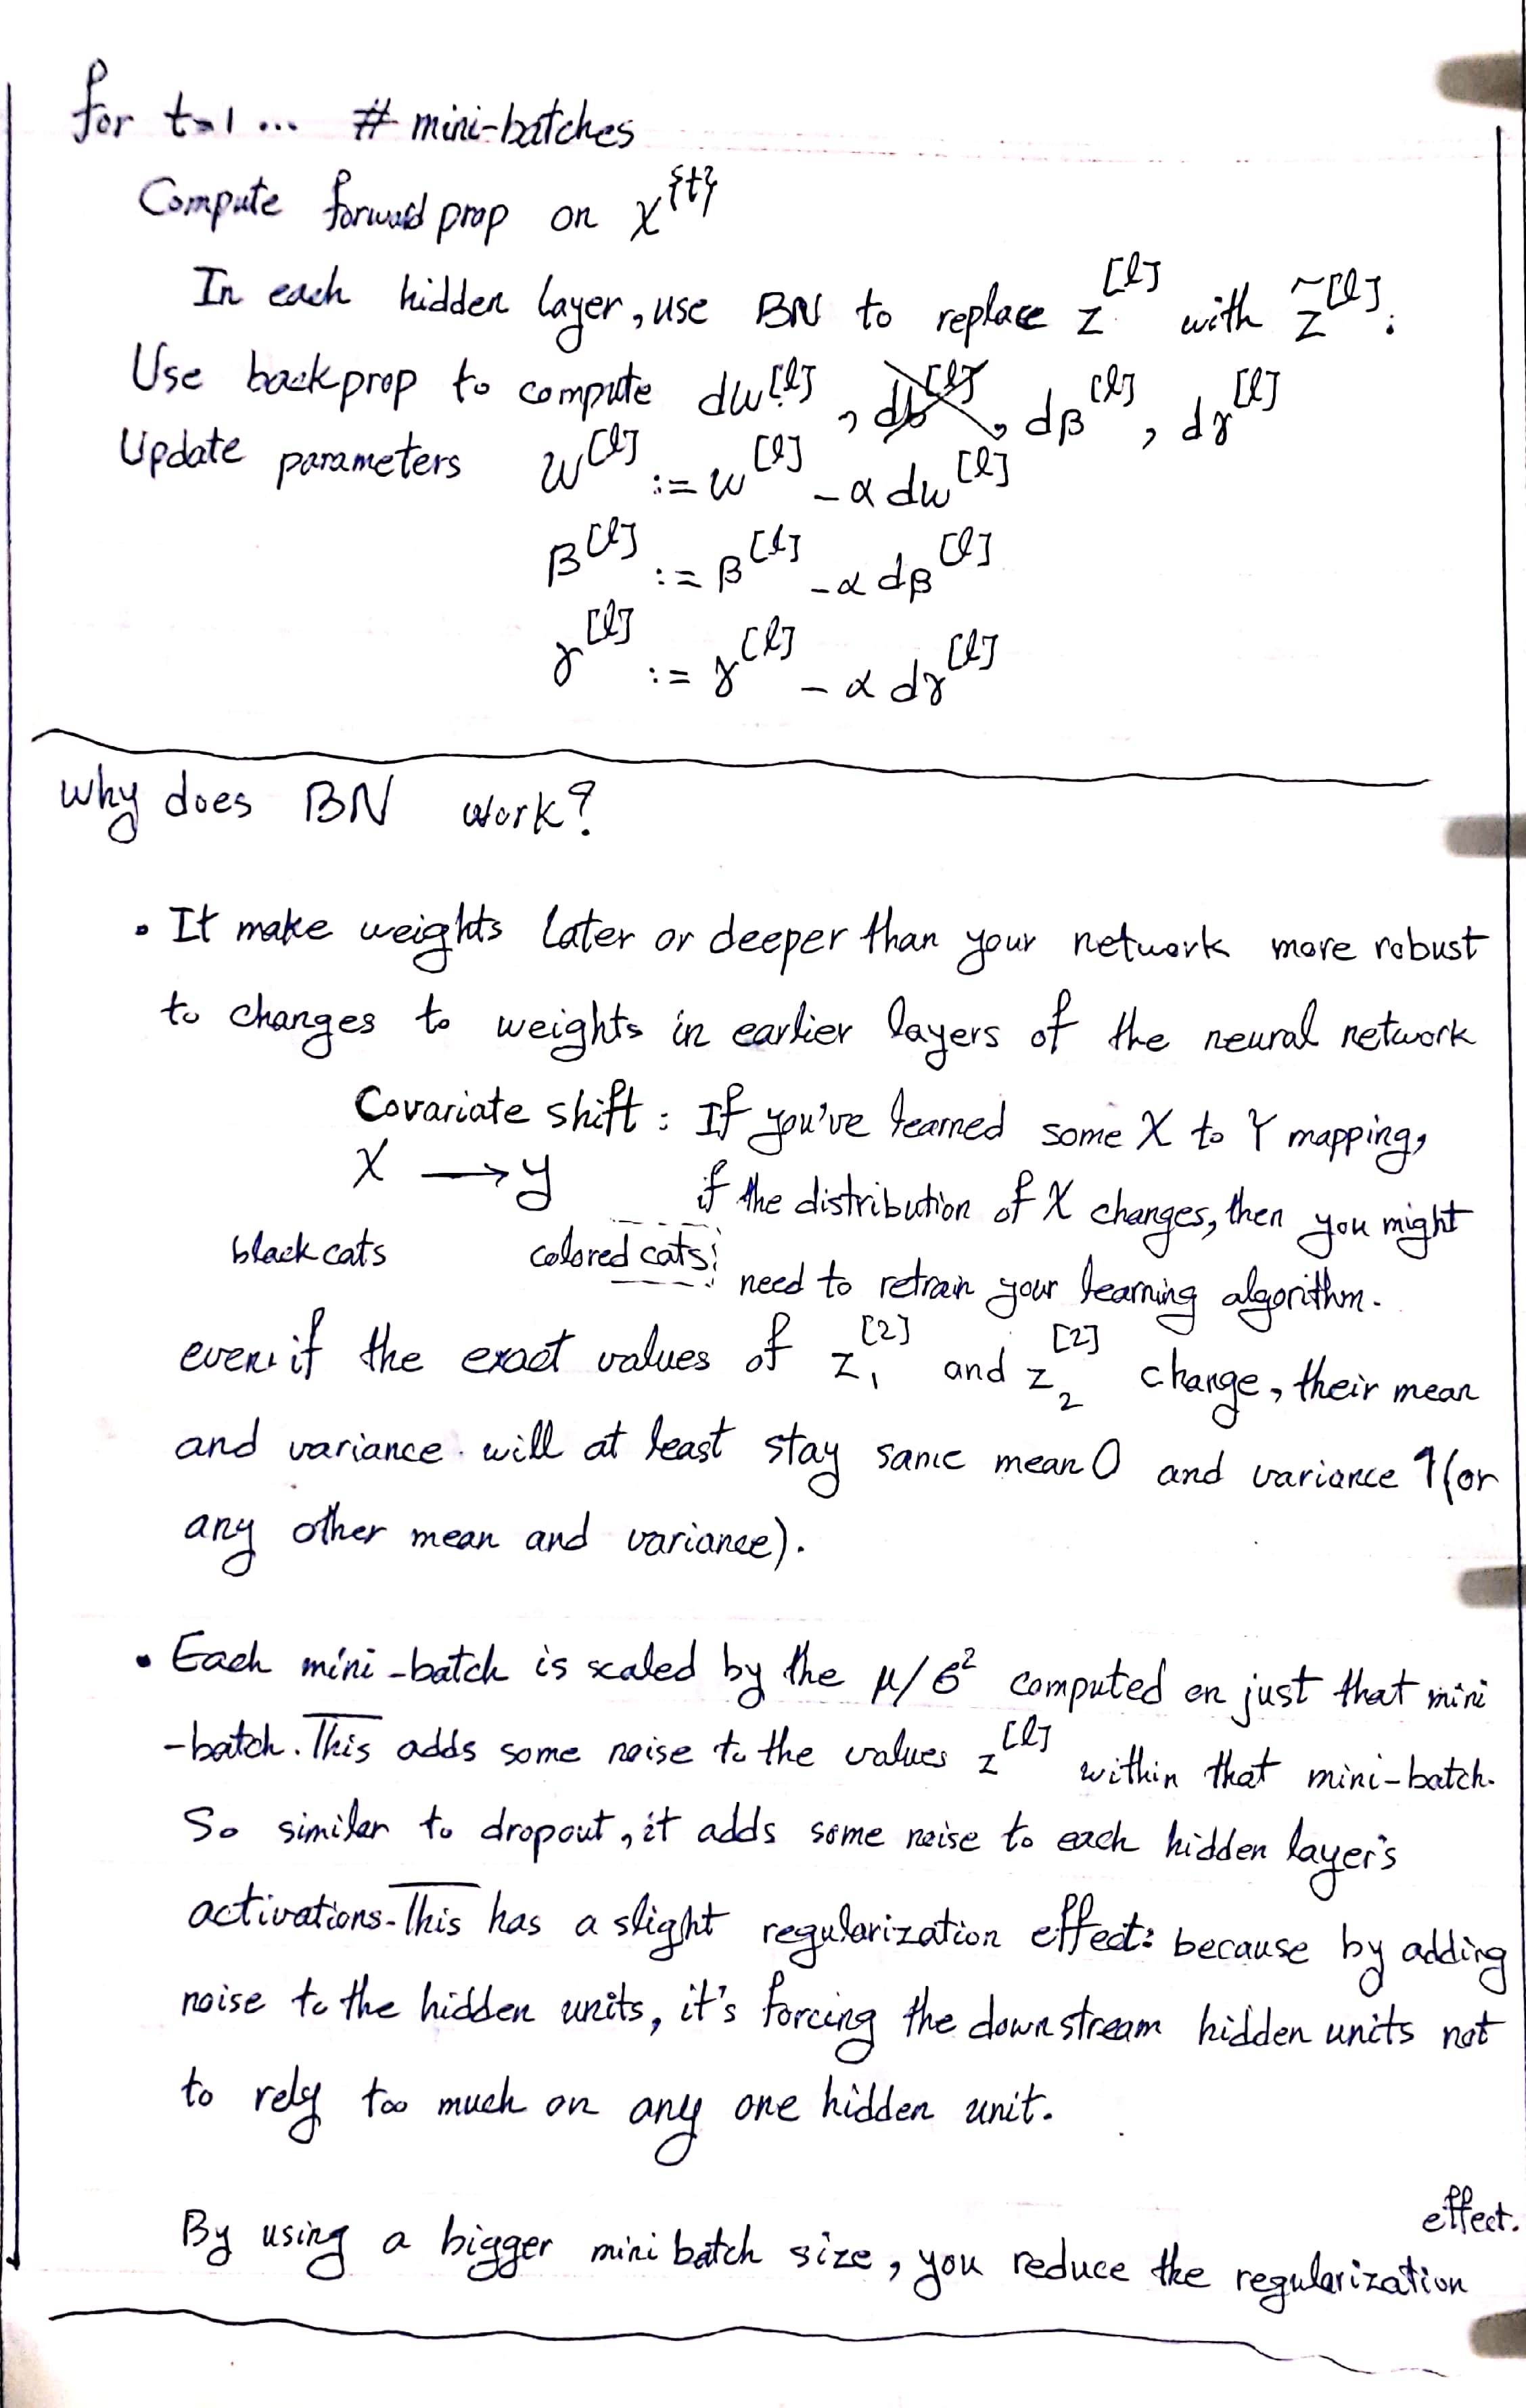 for t=1 ... # mini-batches
Compute forward prop on X^{t}
In each hidden layer, use BN to replace z^[l] with z̃^[l].
Use backprop to compute dw^[l], db^[l], dβ^[l], dγ^[l]
Update parameters w^[l] := w^[l] - α dw^[l]
β^[l] := β^[l] - α dβ^[l]
γ^[l] := γ^[l] - α dγ^[l]
why does BN work?
• It make weights later or deeper than your network more robust
to changes to weights in earlier layers of the neural network
Covariate shift : If you've learned some X to Y mapping,
X → y if the distribution of X changes, then you might
black cats colored cats need to retrain your learning algorithm.
even if the exact values of z₁^[2] and z₂^[2] change, their mean
and variance will at least stay same mean 0 and variance 1 (or
any other mean and variance).
• Each mini-batch is scaled by the μ/σ² computed on just that mini
-batch. This adds some noise to the values z^[l] within that mini-batch.
So similar to dropout, it adds some noise to each hidden layer's
activations. This has a slight regularization effect: because by adding
noise to the hidden units, it's forcing the downstream hidden units not
to rely too much on any one hidden unit.
By using a bigger mini batch size, you reduce the regularization effect.